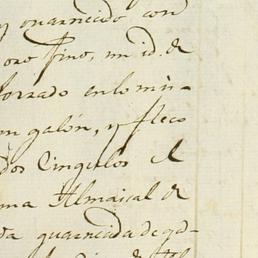 y guarnecido con
oro fino, un id. de
forrado en lo mis-
on galón, y fleco
dos Cingulos el
una Almaical de
da guarnecida de gd-